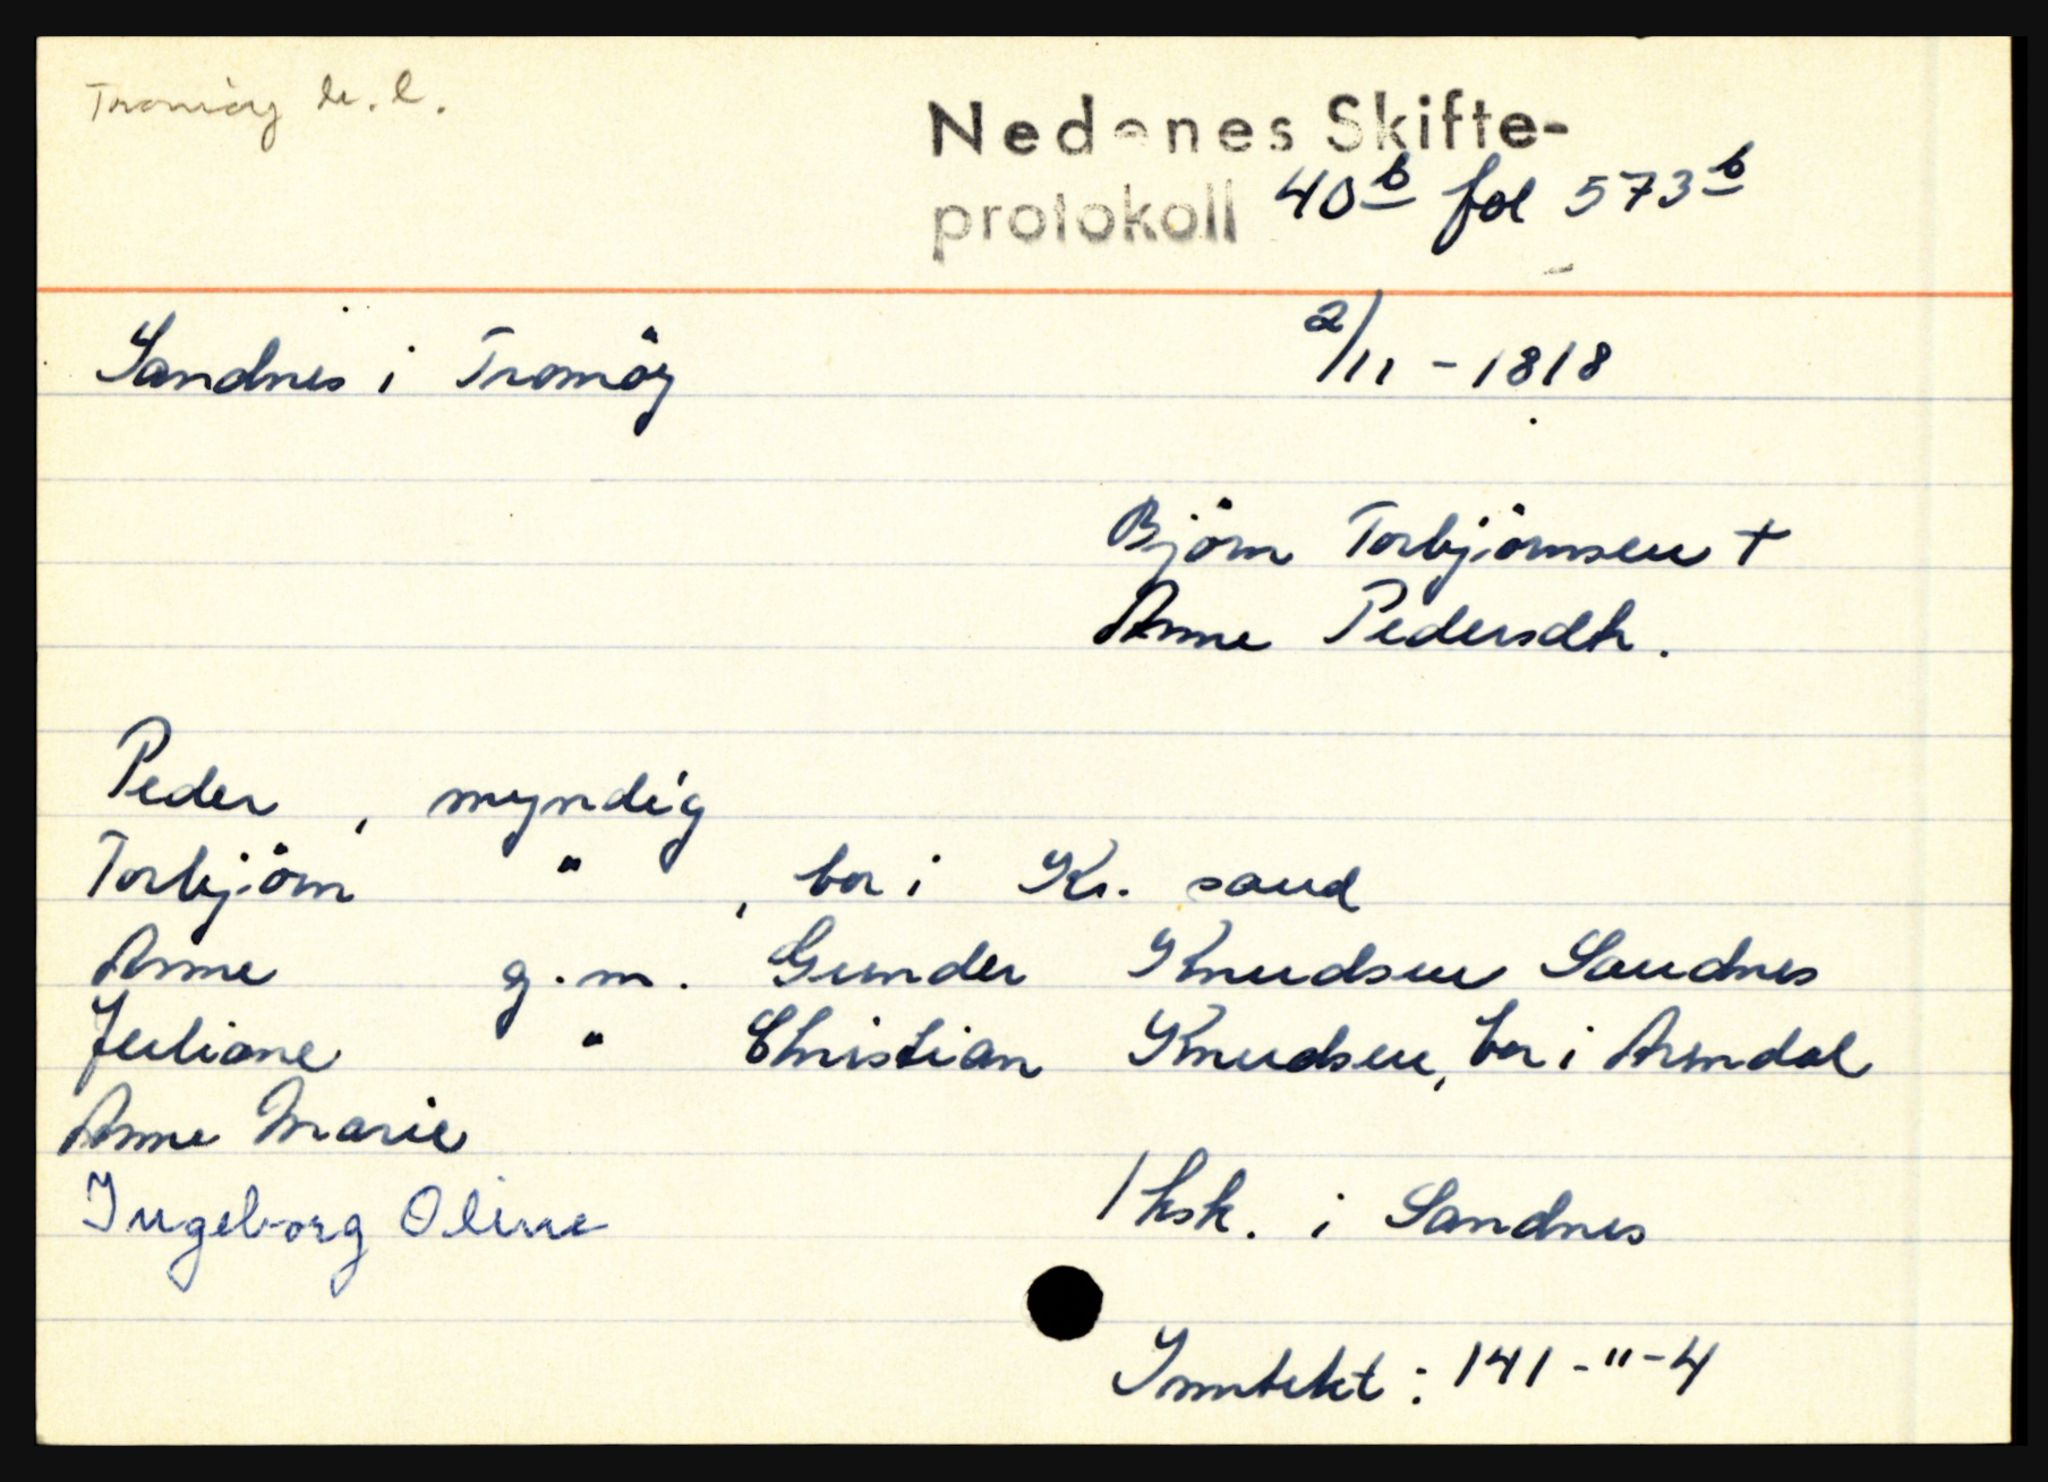 Tromöy h.l.
Nedenes Skifte-
protokoll 40b fol 573b
Sandnes i Tromöy 2/11 - 1818
Björn Torbjörnsen +
Anne Pedersdtr.
Peder, myndig
Torbjörn " , bor i Kr. sand
Anne g.m. Gunder Knudsen Sandnes
Juliane " Christian Knudsen, bor i Arendal
Anne Marie
Ingeborg Oline
1 hsk. i Sandnes
Inntekt: 141-"-4